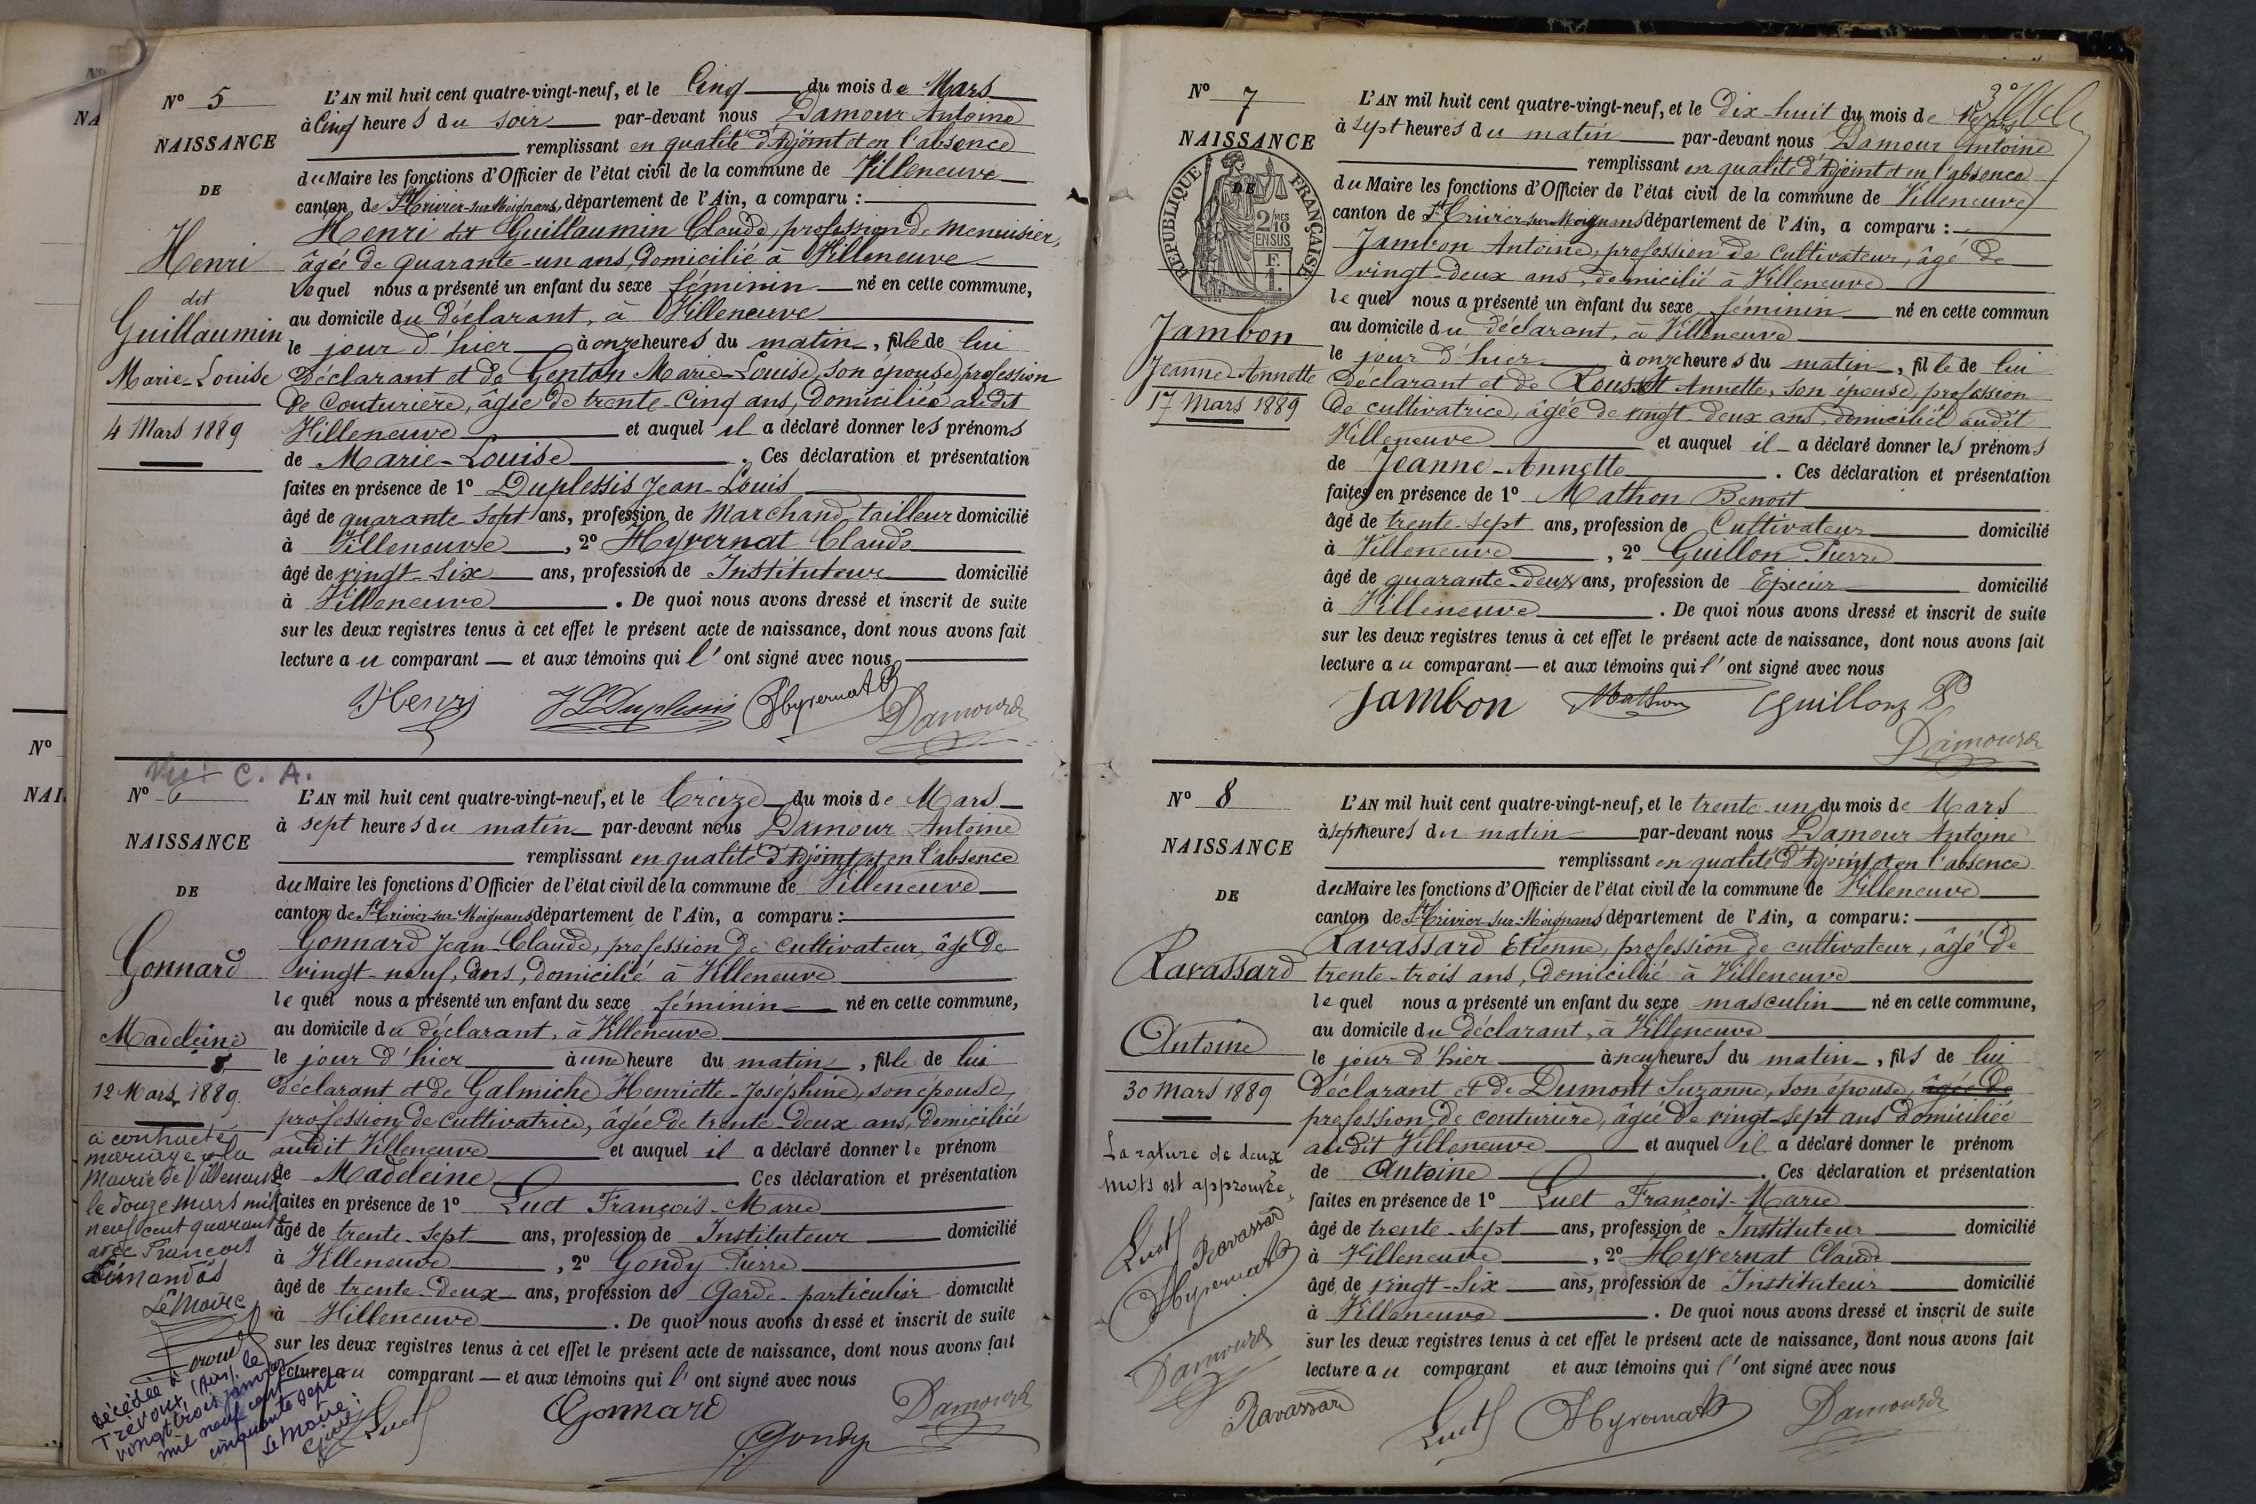 N° 5
NAISSANCE
DE
Henri
dit
Guillaumin
Marie-Louise
4 Mars 1889
L'AN mil huit cent quatre-vingt-neuf, et le Cinq du mois de Mars
à Cinq heures du soir par-devant nous Damour Antoine
remplissant en qualité d'Adjoint et en l'absence
du Maire les fonctions d'Officier de l'état civil de la commune de Villeneuve
canton de St Trivier-sur-Moignans, département de l'Ain, a comparu :
Henri dit Guillaumin Claude, profession de menuisier,
âgée de quarante-un ans, domicilié à Villeneuve
lequel nous a présenté un enfant du sexe féminin né en cette commune,
au domicile du déclarant, à Villeneuve
le jour d'hier à onze heures du matin, fille de lui
déclarant et de Genton Marie-Louise, son épouse, profession
de couturière, âgée de trente-cinq ans, domiciliée audit
Villeneuve et auquel il a déclaré donner les prénoms
de Marie-Louise. Ces déclaration et présentation
faites en présence de 1° Duplessis Jean-Louis
âgé de quarante-sept ans, profession de Marchand tailleur domicilié
à Villeneuve, 2° Hyvernat Claude
âgé de vingt-six ans, profession de Instituteur domicilié
à Villeneuve. De quoi nous avons dressé et inscrit de suite
sur les deux registres tenus à cet effet le présent acte de naissance, dont nous avons fait
lecture au comparant et aux témoins qui l'ont signé avec nous
Henri JL Duplessis Hyvernat Damour
C. A.
N° 6
NAISSANCE
DE
Gonnard
Madeleine
12 Mars 1889
a contracté
mariage à la
Mairie de Villeneuve
le douze mars mil
neuf cent quarante
avec François
Le Maire
décédée à
Trévoux, (Ain) le
vingt trois janvier
mil neuf cent
cinquante sept
Le Maire :
L'AN mil huit cent quatre-vingt-neuf, et le treize du mois de Mars
à sept heures du matin par-devant nous Damour Antoine
remplissant en qualité d'Adjoint et en l'absence
du Maire les fonctions d'Officier de l'état civil de la commune de Villeneuve
canton de St Trivier-sur-Moignans département de l'Ain, a comparu :
Gonnard Jean-Claude, profession de cultivateur, âgé de
vingt-neuf, ans, domicilié à Villeneuve
lequel nous a présenté un enfant du sexe féminin né en cette commune,
au domicile du déclarant, à Villeneuve
le jour d'hier à une heure du matin, fille de lui
déclarant et de Galmiche Henriette-Joséphine, son épouse,
profession de cultivatrice, âgée de trente-deux ans, domiciliée
audit Villeneuve et auquel il a déclaré donner le prénom
de Madeleine Ces déclaration et présentation
faites en présence de 1° Luct François-Marie
âgé de trente-sept ans, profession de Instituteur domicilié
à Villeneuve, 2° Gondy Pierre
âgé de trente-deux ans, profession de Garde-particulier domicilié
à Villeneuve. De quoi nous avons dressé et inscrit de suite
sur les deux registres tenus à cet effet le présent acte de naissance, dont nous avons fait
lecture au comparant et aux témoins qui l'ont signé avec nous
Luct Gonnard Gondy Damour
N° 7
NAISSANCE
DE
RÉPUBLIQUE FRANÇAISE
2/10 MES
EN SUS
F.
1.
Jambon
Jeanne Annette
17 Mars 1889
L'AN mil huit cent quatre-vingt-neuf, et le dix-huit du mois de Mars
à sept heures du matin par-devant nous Damour Antoine
remplissant en qualité d'Adjoint et en l'absence
du Maire les fonctions d'Officier de l'état civil de la commune de Villeneuve
canton de St Trivier sur Moignans département de l'Ain, a comparu :
Jambon Antoine, profession de cultivateur, âgé de
vingt-deux ans, domicilié à Villeneuve
lequel nous a présenté un enfant du sexe féminin né en cette commun
au domicile du déclarant, à Villeneuve
le jour d'hier à onze heures du matin, fille de lui
déclarant et de Rousset Annette, son épouse, profession
de cultivatrice, âgée de vingt-deux ans, domiciliée audit
Villeneuve et auquel il a déclaré donner les prénoms
de Jeanne-Annette. Ces déclaration et présentation
faites en présence de 1° Mathon Benoit
âgé de trente-sept ans, profession de Cultivateur domicilié
à Villeneuve, 2° Guillon Pierre
âgé de quarante-deux ans, profession de Epicier domicilié
à Villeneuve. De quoi nous avons dressé et inscrit de suite
sur les deux registres tenus à cet effet le présent acte de naissance, dont nous avons fait
lecture au comparant et aux témoins qui l'ont signé avec nous
Jambon Mathon Guillon P Damour
N° 8
NAISSANCE
DE
Ravassard
Antoine
30 Mars 1889
La rature de deux
mots est approuvée
Luct
Ravassard
Hyvernat
Damour
L'AN mil huit cent quatre-vingt-neuf, et le trente-un du mois de Mars
à sept heures du matin par-devant nous Damour Antoine
remplissant en qualité d'Adjoint et en l'absence
du Maire les fonctions d'Officier de l'état civil de la commune de Villeneuve
canton de St Trivier-sur-Moignans département de l'Ain, a comparu :
Ravassard Etienne, profession de cultivateur, âgé de
trente-trois ans, domicilié à Villeneuve
lequel nous a présenté un enfant du sexe masculin né en cette commune,
au domicile du déclarant, à Villeneuve
le jour d'hier à neuf heures du matin, fils de lui
déclarant et de Dumont Suzanne, son épouse, âgée de
profession de couturière, âgée de vingt-sept ans domiciliée
audit Villeneuve et auquel il a déclaré donner le prénom
de Antoine. Ces déclaration et présentation
faites en présence de 1° Luct François-Marie
âgé de trente-sept ans, profession de Instituteur domicilié
à Villeneuve, 2° Hyvernat Claude
âgé de vingt-six ans, profession de Instituteur domicilié
à Villeneuve. De quoi nous avons dressé et inscrit de suite
sur les deux registres tenus à cet effet le présent acte de naissance, dont nous avons fait
lecture au comparant et aux témoins qui l'ont signé avec nous
Ravassard Luct Hyvernat Damour